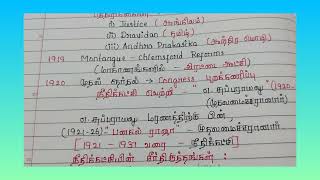 i) Justice (ஆங்கிலம்)
ii) Dravidan (தமிழ்)
iii) Andhra Prakasika (ஆந்திர மொழி)
1919 Montangue - Chlemsford Reforms
(மாகாணங்களில் - இரட்டை ஆட்சி)
1920 முதல் தேர்தல் → Congress புறக்கணிப்பு
நீதிக்கட்சி வெற்றி " ஏ. சுப்பராயலு (1920
முதலமைச்சரானார்
ஏ. சுப்பராயலு மரணத்திற்கு பின்,
(1921-26) " பனகல் ராஜா - முதலமைச்சரானார்.
[1921 - 1937 வரை - நீதிக்கட்சி]
நீதிக்கட்சியின் சீர்திருத்தங்கள் :